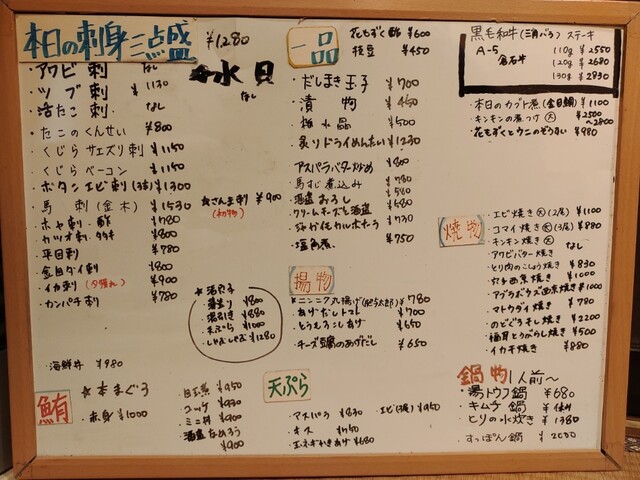 本日の刺身三点盛 ¥1280
・アワビ刺 なし
・ツブ刺 ¥1130
・活たこ刺 なし
・たこのくんせい ¥800
・くじらサエズリ刺 ¥1150
・くじらベーコン ¥1150
・ボタンエビ刺(3本)¥1300
・馬刺(金木) ¥1530
・ホヤ刺・酢 ¥780
・カツオ刺・タタキ ¥800
・平目刺 ¥780
・金目ダイ刺 ¥800
・イカ刺(夕獲れ) ¥900
・カンパチ刺 ¥780
・海鮮丼 ¥980
水貝 なし
・さんま刺 ¥900
(初物)
¥800
湯引き ¥880
天ぷら ¥1000
しゃぶしゃぶ ¥1280
鮪
本まぐろ
・赤身 ¥1000
・目玉煮 ¥950
・ユッケ ¥930
・ミニ丼 ¥900
・酒盗なめろう ¥900
一品
花もずく酢 ¥600
枝豆 ¥450
・だしまき玉子 ¥700
・漬物 ¥450
・梅水晶 ¥500
・炙りドライめんたい ¥1230
・アスパラバター炒め ¥800
・馬すじ煮込み ¥780
・酒盗おろし ¥580
・クリームチーズと酒盗 ¥680
・じゃが仔カルボナーラ ¥730
・塩角煮 ¥750
揚物
・ニンニク丸揚げ ¥780
・あげだしトマト ¥700
・とうもろこしあげ ¥650
・チーズ豆腐のあげだし ¥650
天ぷら
・アスパラ ¥830
・エビ(3尾) ¥950
・キス ¥750
・玉ネギかきあげ ¥680
黒毛和牛(三角バラ)ステーキ
A-5 110g ¥2550
倉石牛 120g ¥2680
130g ¥2830
・本日のカブト煮(金目鯛)¥1100
・キンキンの煮つけ 大 ¥2500〜2800
・花もずくとウニのぞうすい ¥980
焼物
・エビ焼き 大(2尾) ¥1100
・コマイ焼き 大(3尾) ¥880
・キンキン焼き 大
・アワビバター焼き なし
・とり肉のこしょう焼き ¥830
¥1000
・アブラボウズ西京焼き ¥1000
・マトウダイ焼き ¥780
・のどぐろ干し焼き ¥2200
・福耳とうがらし焼き ¥500
・イカ焼き ¥880
鍋物 1人前〜
・湯トウフ鍋 ¥680
・キムチ鍋
・とりの水炊き ¥1380
・すっぽん鍋 ¥2000